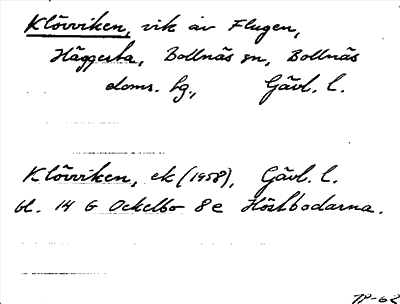 Klövviken, vik av Flugen,
Häggesta, Bollnäs sn, Bollnäs
doms. hg., Gävl. l.
Klövviken, ek (1958), Gävl. l.
bl. 14 G Ockelbo 8e Höstbodarna.
TP-62